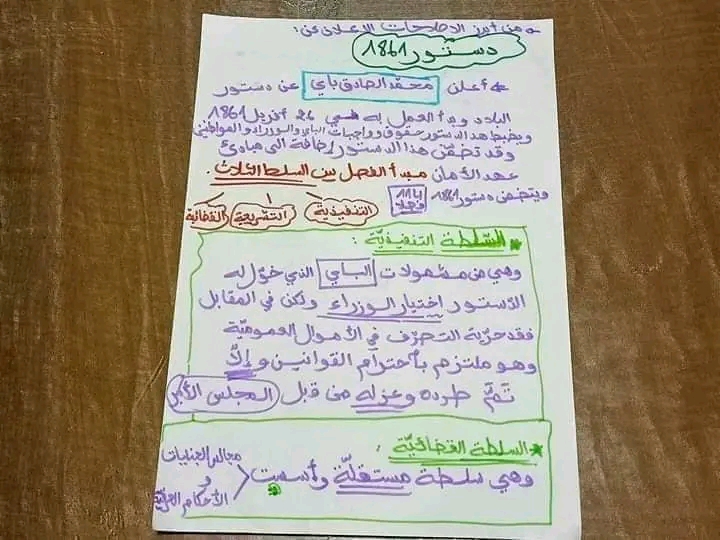 من أبرز الاصلاحات الاعلان عن:
دستور 1861
أعلن محمد الصادق باي عن دستور
البلاد وبدأ العمل به في 26 أفريل 1861
ويضبط هذا الدستور حقوق وواجبات الباي والوزراء والمواطنين
وقد تضمّن هذا الدستور إضافة الى مبادئ
عهد الأمان مبدأ الفصل بين السلط الثلاث.
ويتضمن دستور 1861 114 فصلا
التنفيذية التشريعية القضائية
* السّلطة التنفيذيّة:
وهي من مشمولات الباي الذي خوّل له
الدّستور إختيار الوزراء ولكن في المقابل
فقد حريّة التصرّف في الأموال العموميّة
وهو ملتزم بآحترام القوانين وإلاّ
تمّ طرده وعزله من قبل المجلس الأكبر
* السلطة القضائيّة:
وهي سلطة مستقلّة وأسست
مجالس الجنايات
و
الأحكام العرفيّة